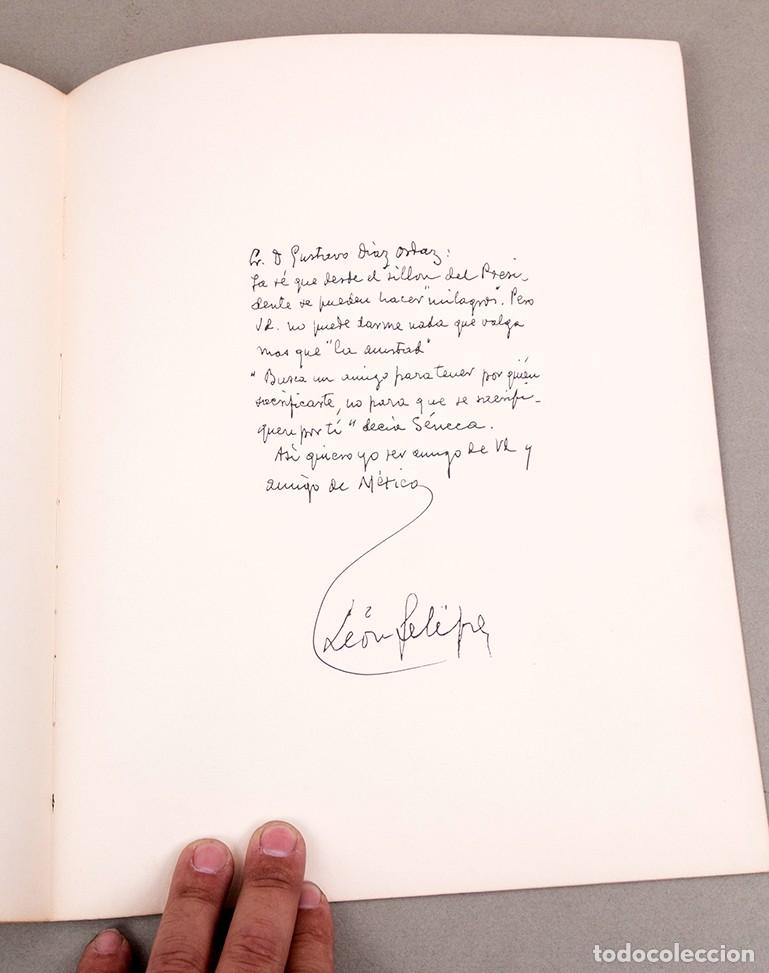 Sr. D Gustavo Díaz Ordaz:
Ya sé que desde el sillon del Presi-
dente se pueden hacer "milagros". Pero
Vd. no puede darme nada que valga
mas que "la amistad"
"Busca un amigo para tener por quién
sacrificarte, no para que se sacrifi-
quen por tí" decía Séneca.
Asi quiero yo ser amigo de Vd y
amigo de México
León Felipe
todocoleccion